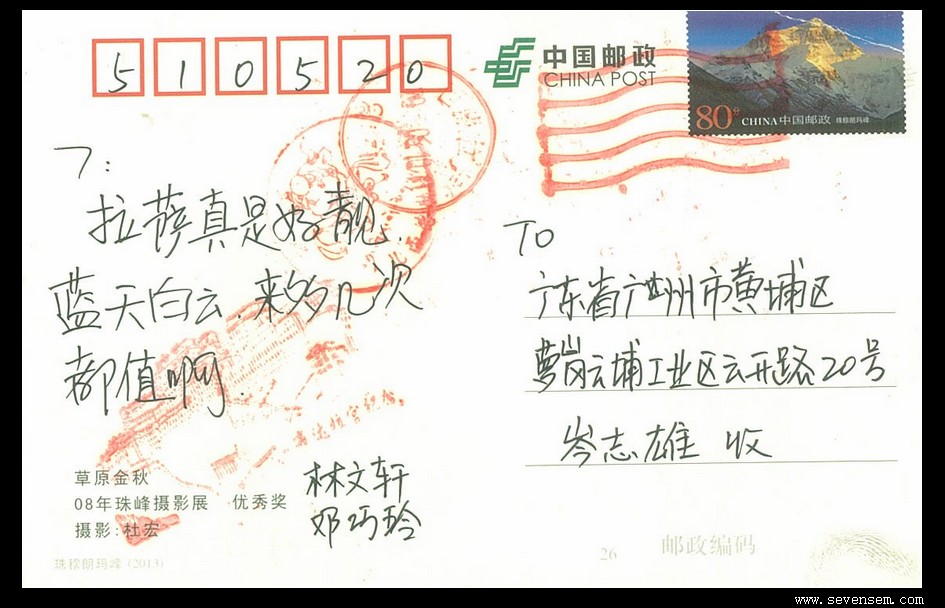 510520
中国邮政
CHINA POST
80分 CHINA中国邮政 珠穆朗玛峰
7:
拉萨真是好靓、
蓝天白云.来多几次
都值啊.
TO
广东省广州市黄埔区
萝岗云埔工业区云开路20号
岑志雄 收
林文轩
邓巧玲
草原金秋
08年珠峰摄影展 优秀奖
摄影:杜宏
珠穆朗玛峰 (2013)
26
邮政编码
www.sevensem.com